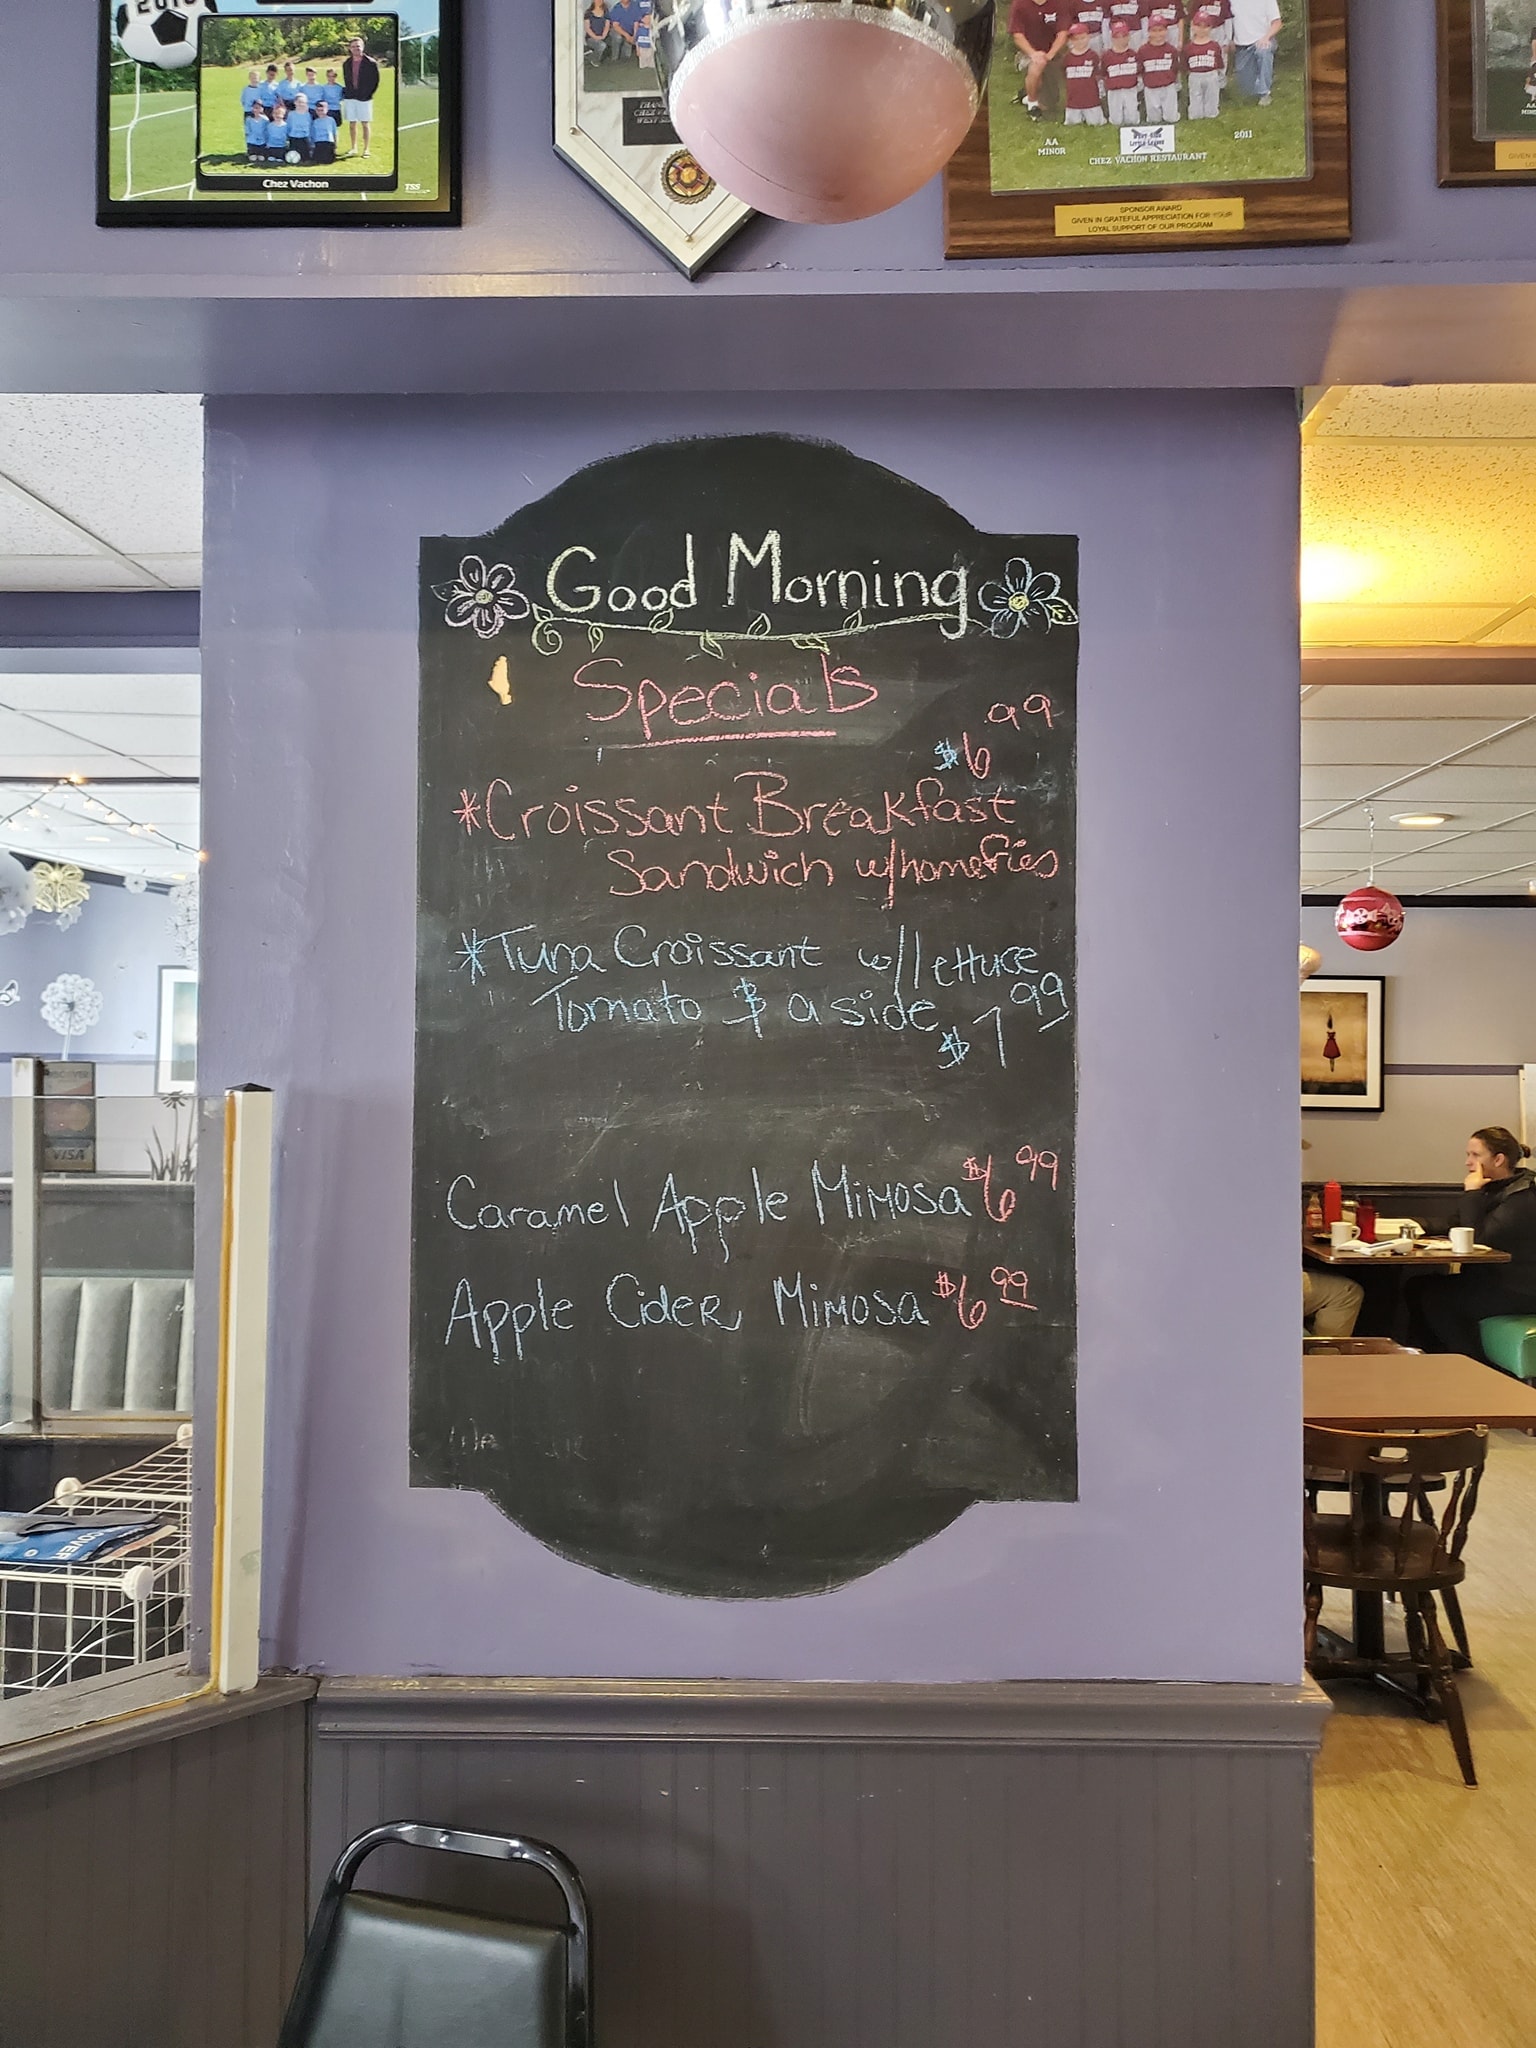 2010
Chez Vachon
TSS
AA
MINOR
2011
CHEZ VACHON RESTAURANT
SPONSOR AWARD
GIVEN IN GRATEFUL APPRECIATION FOR YOUR
LOYAL SUPPORT OF OUR PROGRAM
Good Morning
Specials
$6 99
*Croissant Breakfast
Sandwich w/homefries
*Tuna Croissant w/lettuce
Tomato & a side
$7 99
Caramel Apple Mimosa $6 99
Apple Cider Mimosa $6 99
VISA